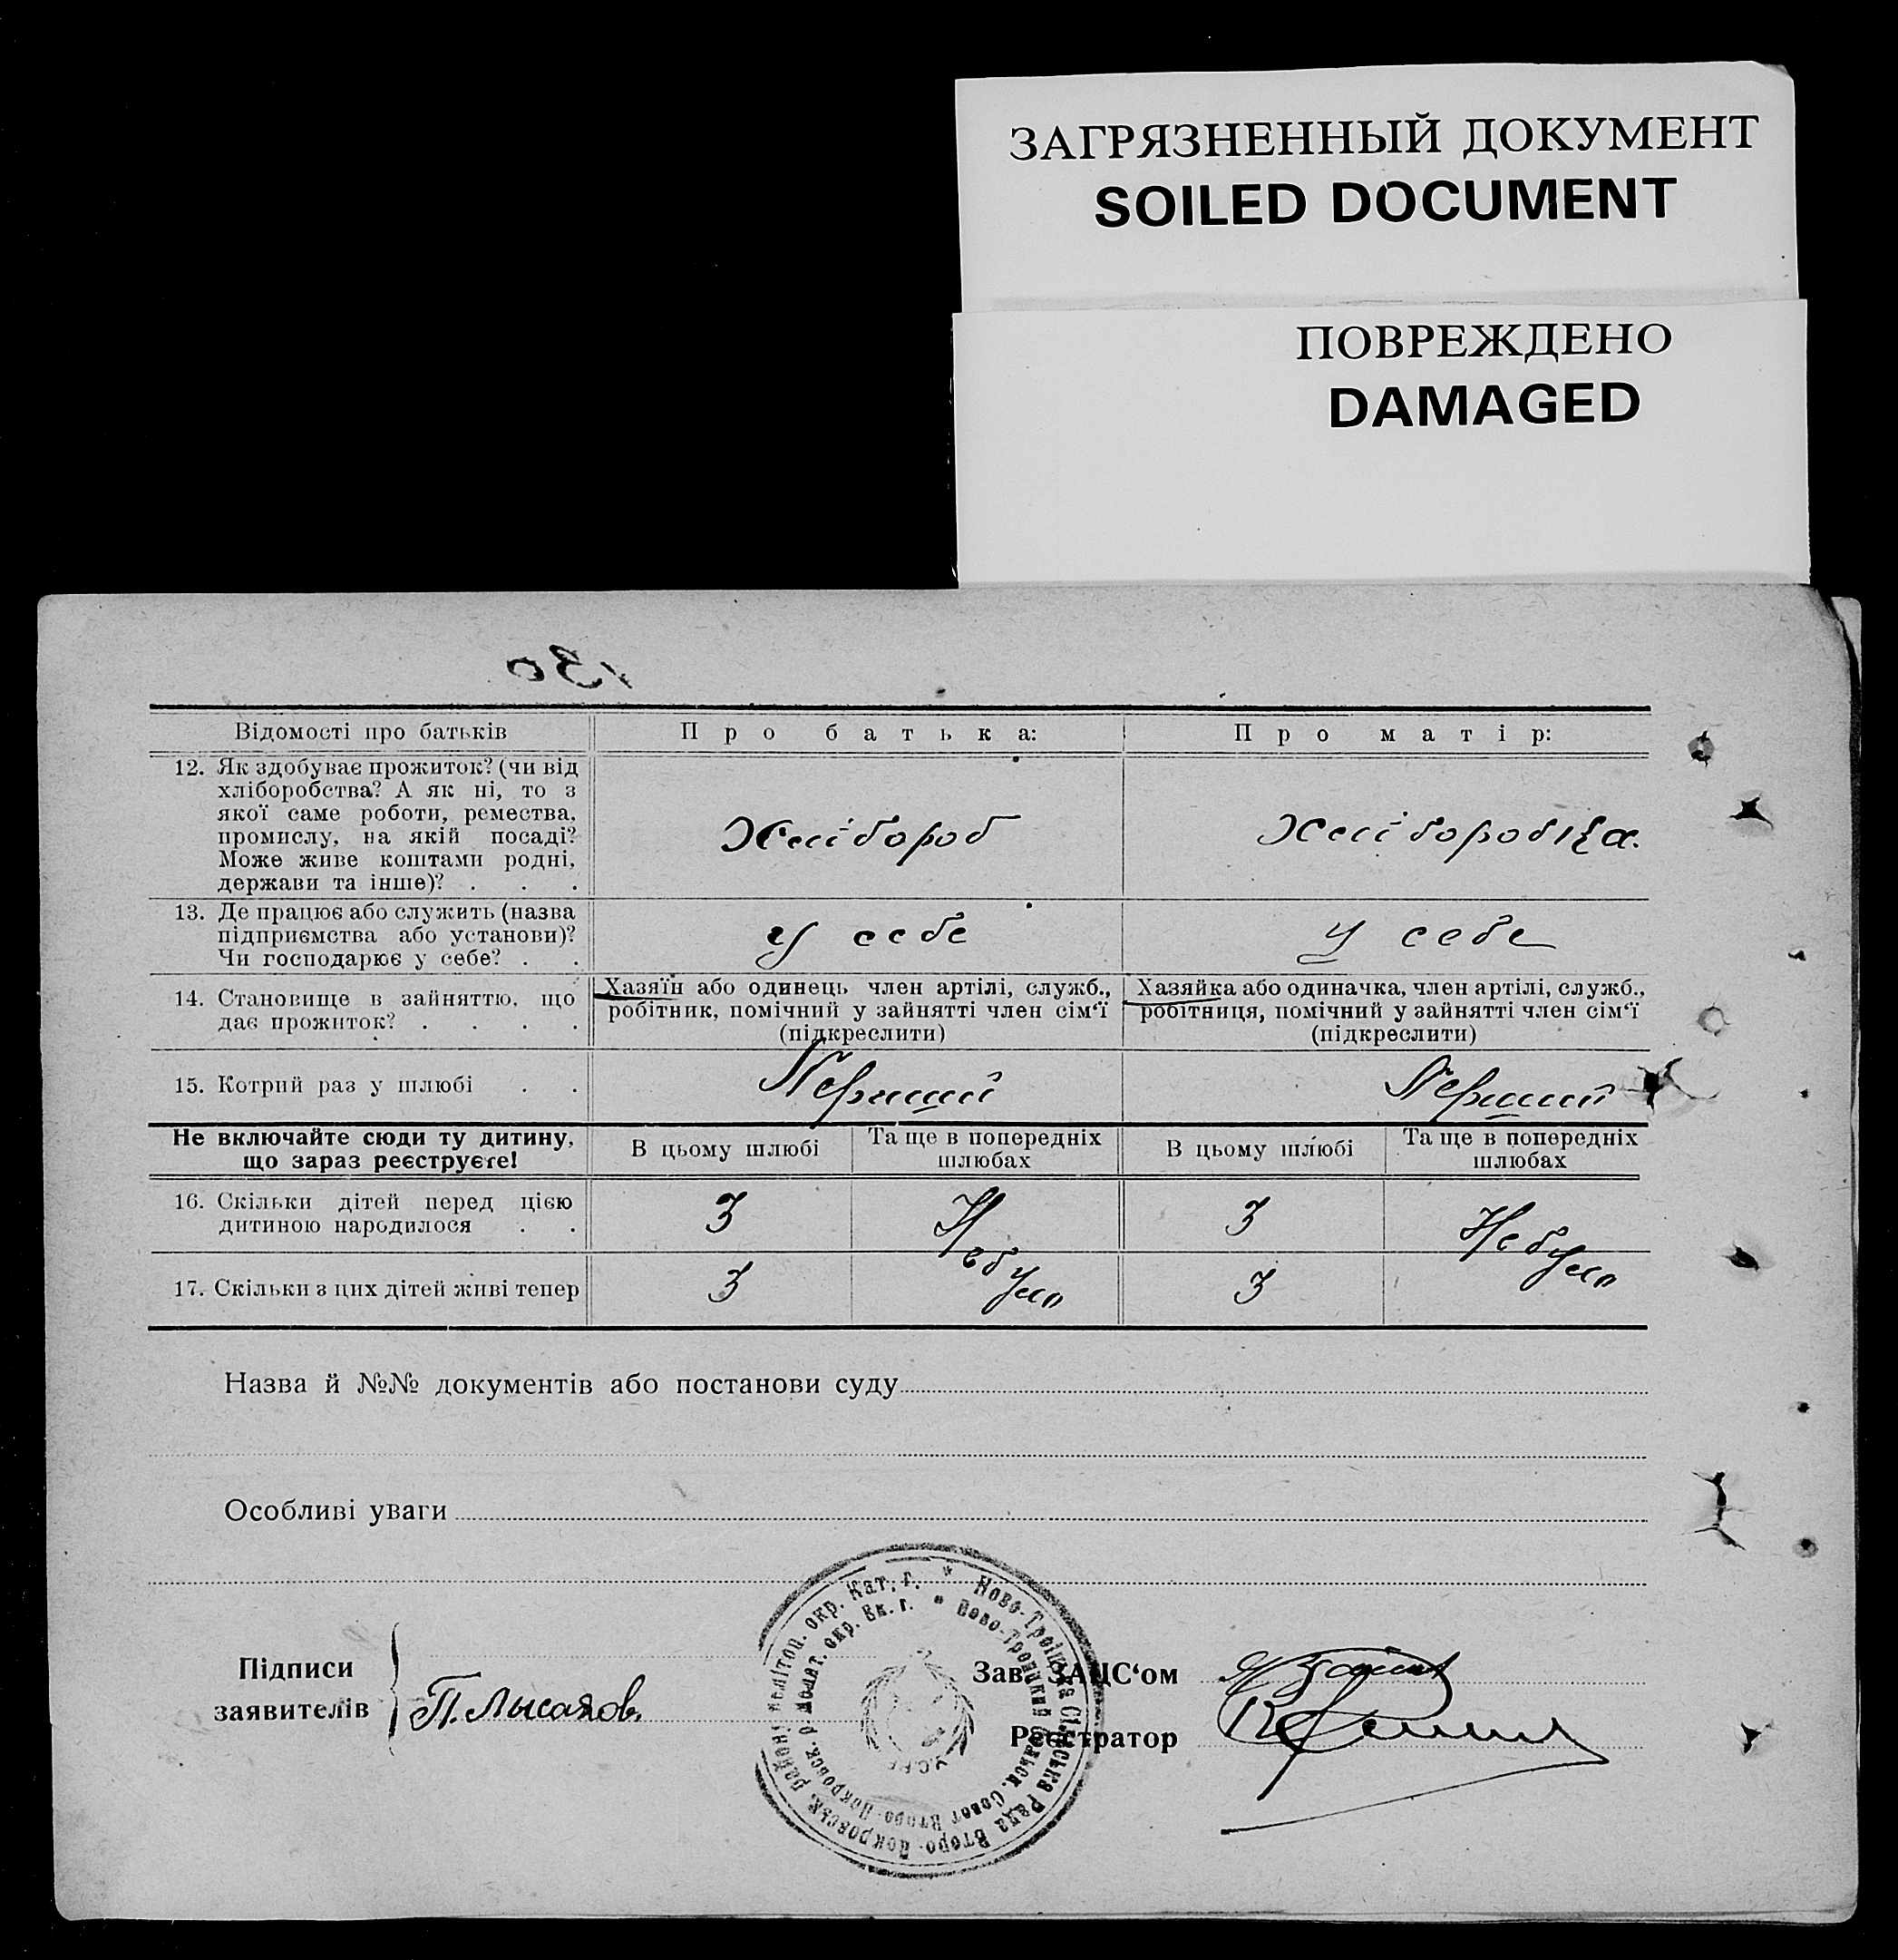 ЗАГРЯЗНЕННЫЙ ДОКУМЕНТ
SOILED DOCUMENT
ПОВРЕЖДЕНО
DAMAGED
Відомості про батьків
Про батька:
Про матір:
12. Як здобуває прожиток? (чи від
хліборобства? А як ні, то з
якої саме роботи, ремества,
промислу, на якій посаді?
Може живе коштами родні,
держави та інше)? . . .
Хлібороб
Хліборобка.
13. Де працює або служить (назва
підприємства або установи)?
Чи господарює у себе? . .
у себе
у себе
14. Становище в зайняттю, що
дає прожиток? . . . .
Хазяїн або одинець член артілі, служб.,
робітник, помічний у зайнятті член сім‘ї
(підкреслити)
Хазяйка або одиначка, член артілі, служб.,
робітниця, помічний у зайнятті член сім‘ї
(підкреслити)
15. Котрий раз у шлюбі . .
Перший
Перший
Не включайте сюди ту дитину,
що зараз реєструєте!
В цьому шлюбі
Та ще в попередніх
шлюбах
В цьому шлюбі
Та ще в попередніх
шлюбах
16. Скільки дітей перед цією
дитиною народилося . .
3
Не було
3
Не було
17. Скільки з цих дітей живі тепер
3
3
Назва й №№ документів або постанови суду
Особливі уваги
Підписи
заявителів
П. Лысаков
Зав. ЗАЦС‘ом
Реєстратор
Ново-Троїцька Сільська Рада Второ-Покровськ. району Мелітоп. окр. Кат. г.
Ново-Троицкий Сельск. Совет Второ-Покровск. р. Мелит. окр. Ек. г.